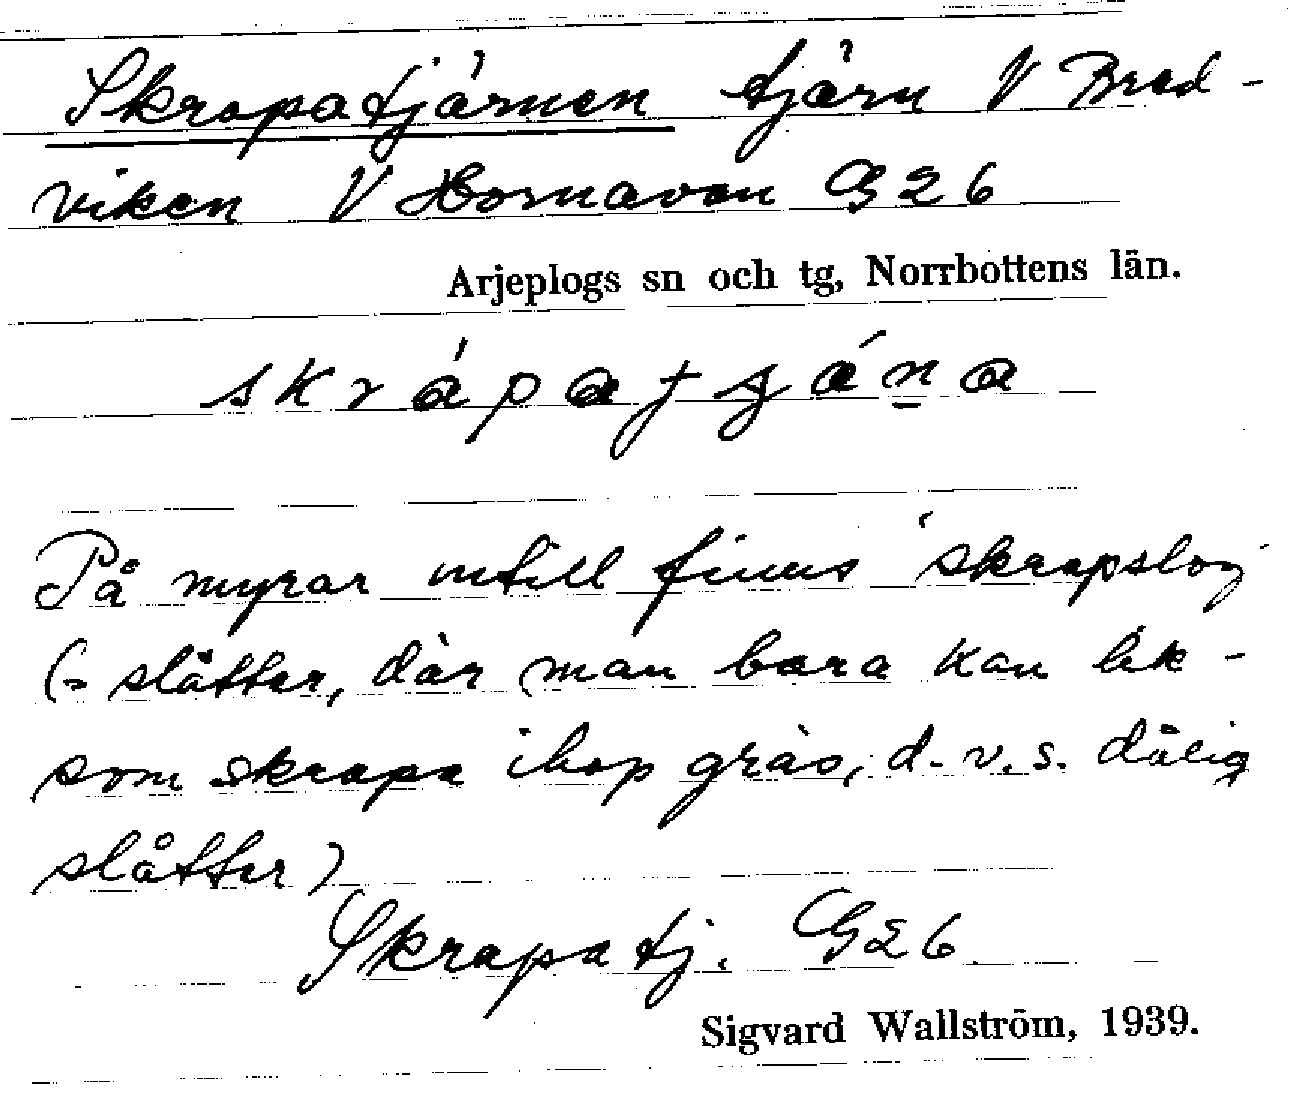 Skrapatjärnen tjärn V Bred-
viken V Hornavan G26
Arjeplogs sn och tg, Norrbottens län.
skrápatjä́n̲a
På myrar intill finns 'skrapslog'
(= slåtter, där man bara kan lik-
som skrapa ihop gräs, d.v.s. dålig
slåtter)
Skrapatj. G26
Sigvard Wallström, 1939.